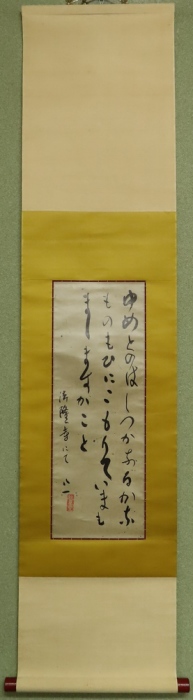 ゆめとのはしつかなるかな
ものもひにこもりていまも
ましますかこと
法隆寺にて